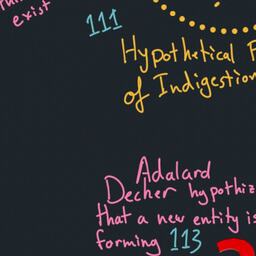 exist
111
Hypothetical
of Indigestion
Adalard
Decher hypothiz
that a new entity is
forming 113